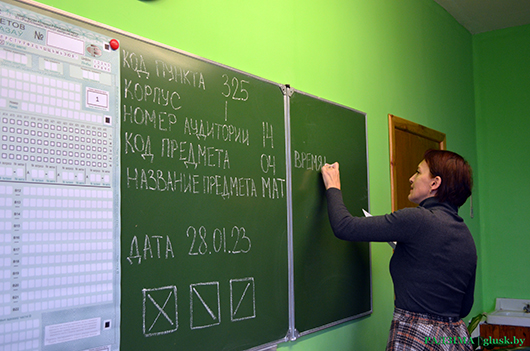 ЕТОВ
КАЗАЎ
№
1
КОД ПУНКТА 325
КОРПУС 1
НОМЕР АУДИТОРИИ 14
КОД ПРЕДМЕТА 04
НАЗВАНИЕ ПРЕДМЕТА МАТ
ДАТА 28.01.23
ВРЕМЯ
РАДЗІМА | glusk.by